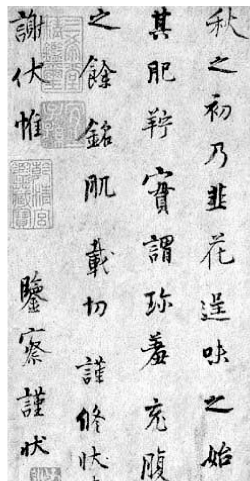 秋之初乃韭花逞味之始
其肥羜實謂珍羞充腹
之餘銘肌載切 謹脩狀
謝伏惟 鑒察謹狀